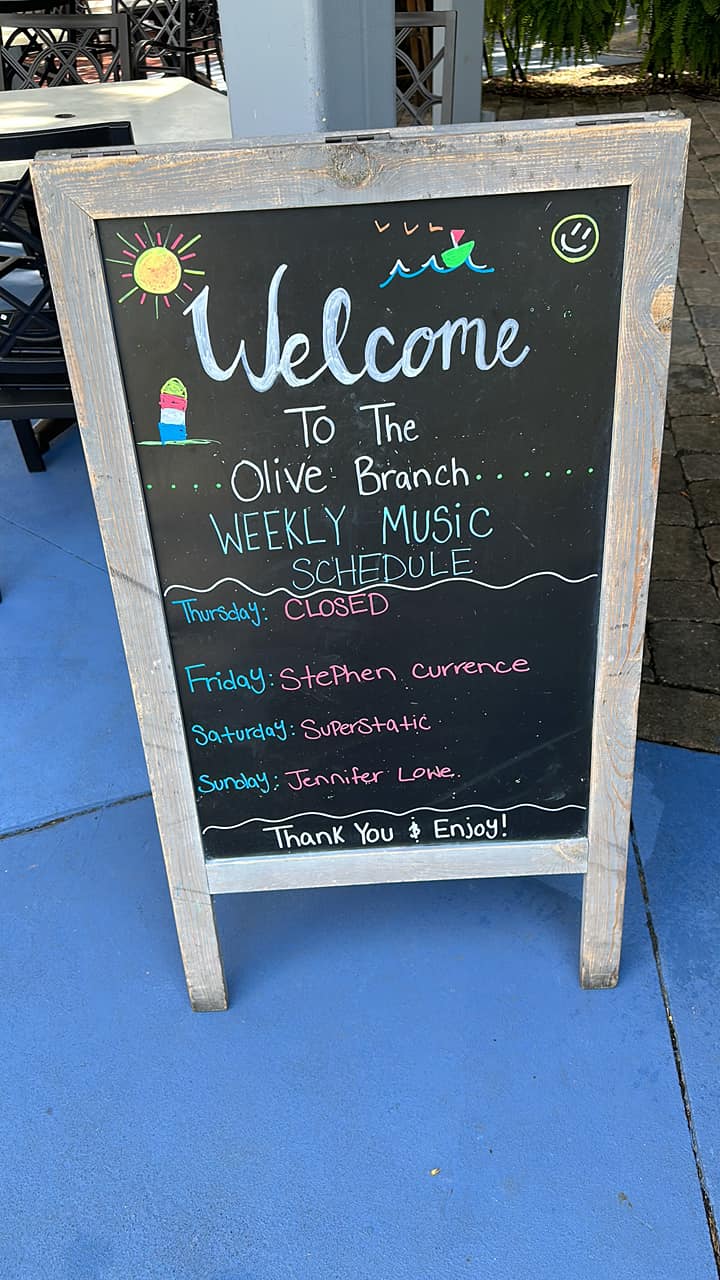 Welcome
To The
Olive Branch
WEEKLY MUSIC
SCHEDULE
Thursday: CLOSED
Friday: Stephen Currence
Saturday: Superstatic
Sunday: Jennifer Lowe.
Thank You & Enjoy!